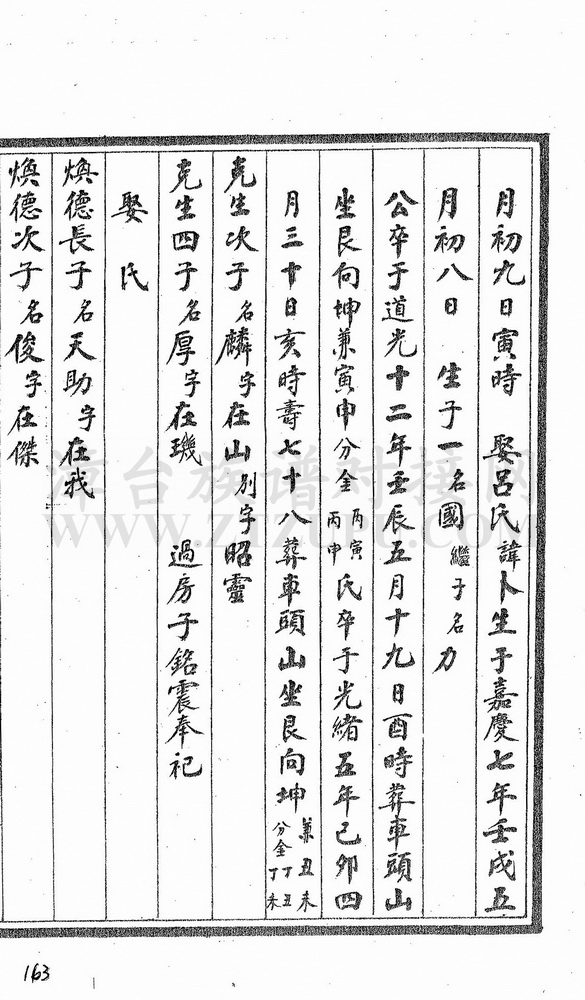 月初九日寅時 娶呂氏諱卜生于嘉慶七年壬戌五
月初八日 生子一名國繼子名力
公卒于道光十二年壬辰五月十九日酉時葬車頭山
坐艮向坤兼寅申分金丙寅丙申氏卒于光緒五年己卯四
月三十日亥時壽七十八葬車頭山坐艮向坤兼丑未分金丁丑丁未
克生次子名麟字在山別字昭靈
克生四子名厚字在璣 過房子銘震奉祀
娶氏
煥德長子名天助字在我
煥德次子名俊字在傑
漳台族谱对接网
www.ztzupu.com
163